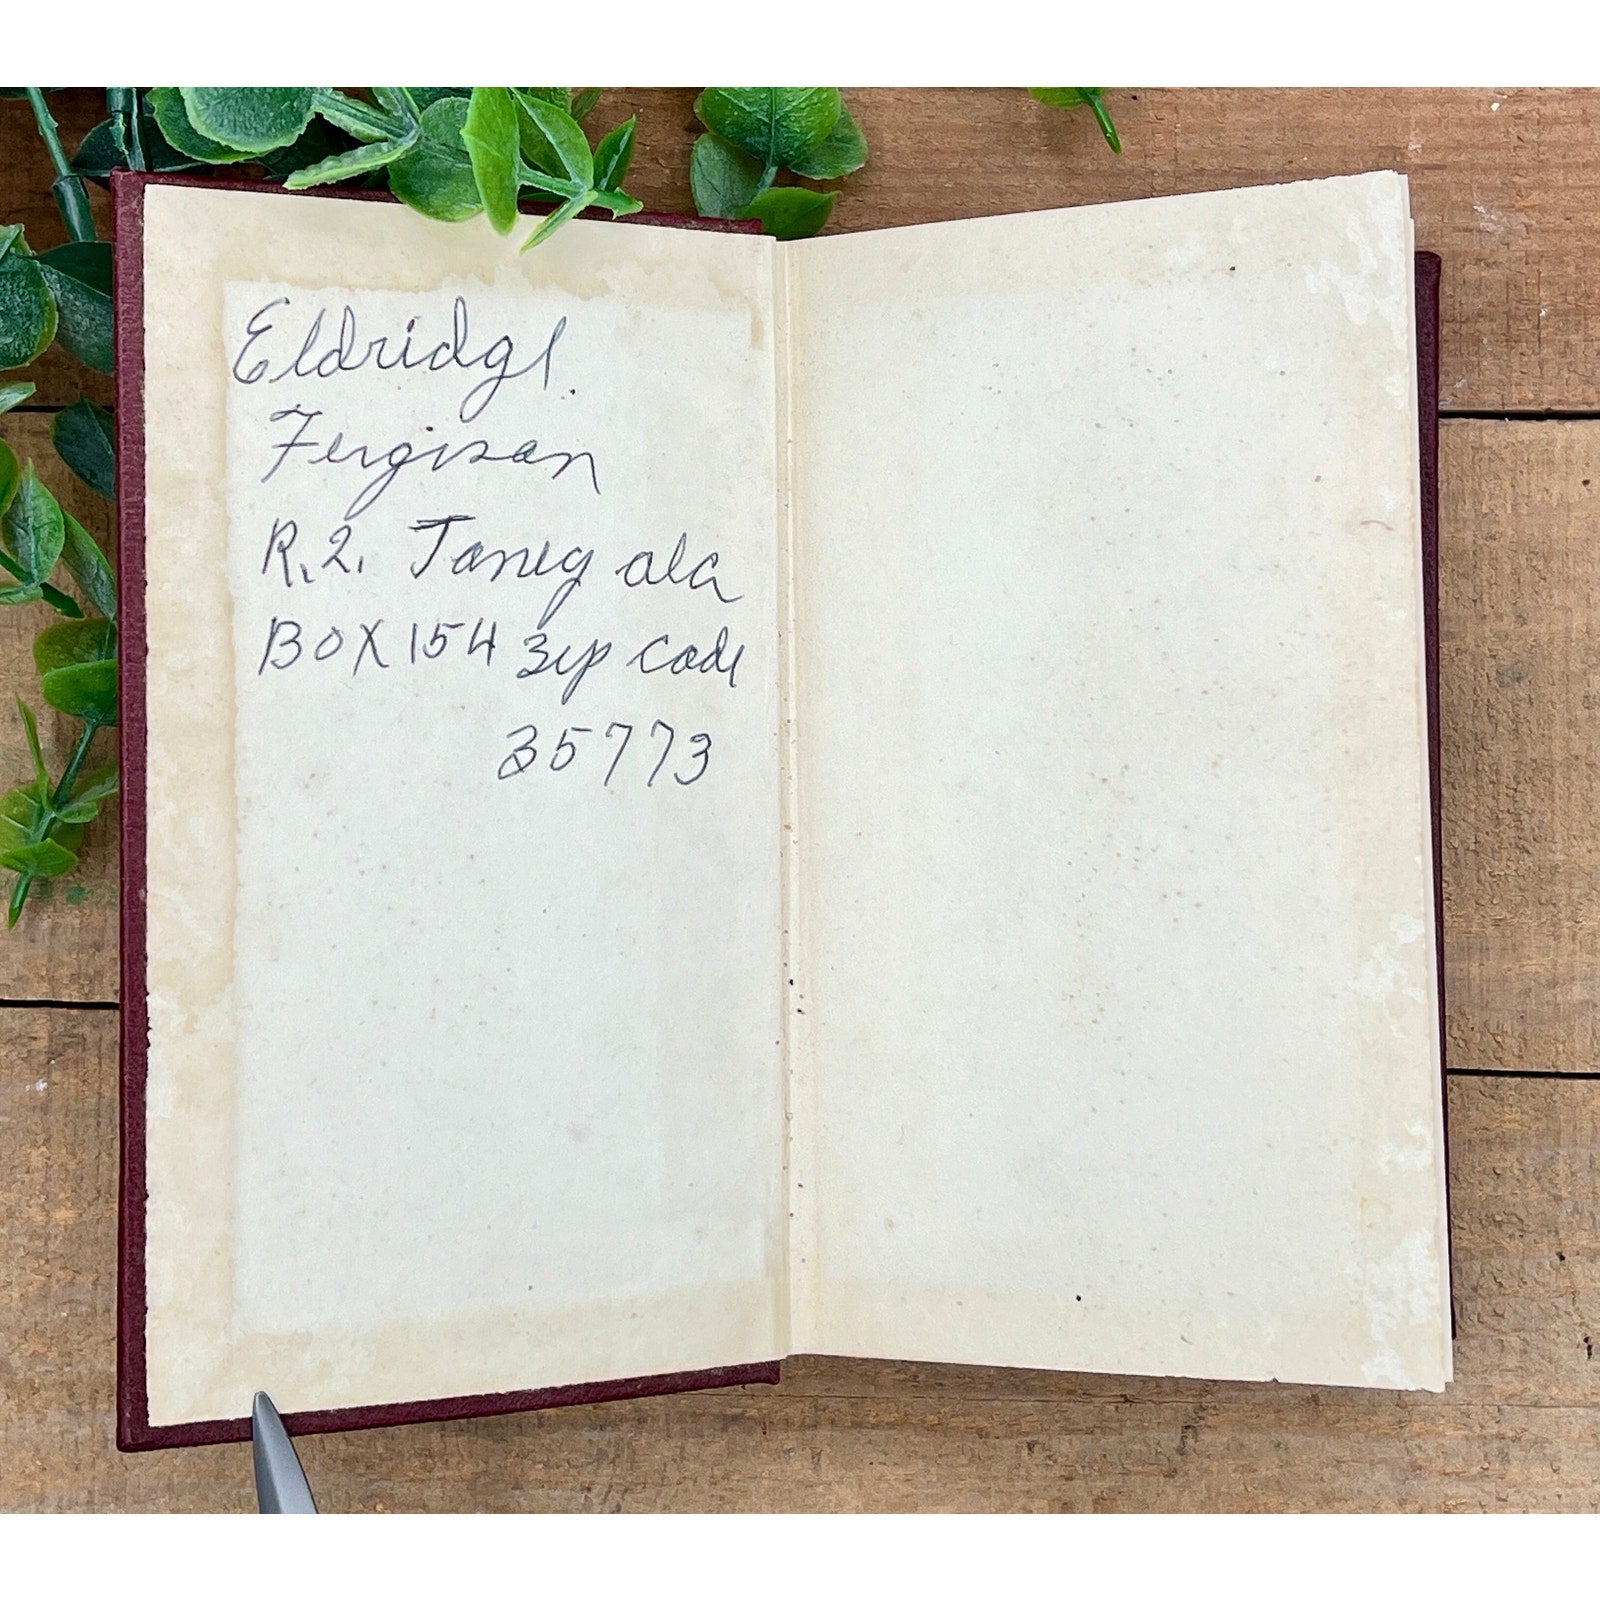 Eldridge
Ferguson
R.2. Toney ala
Box 154 Zip code
35773